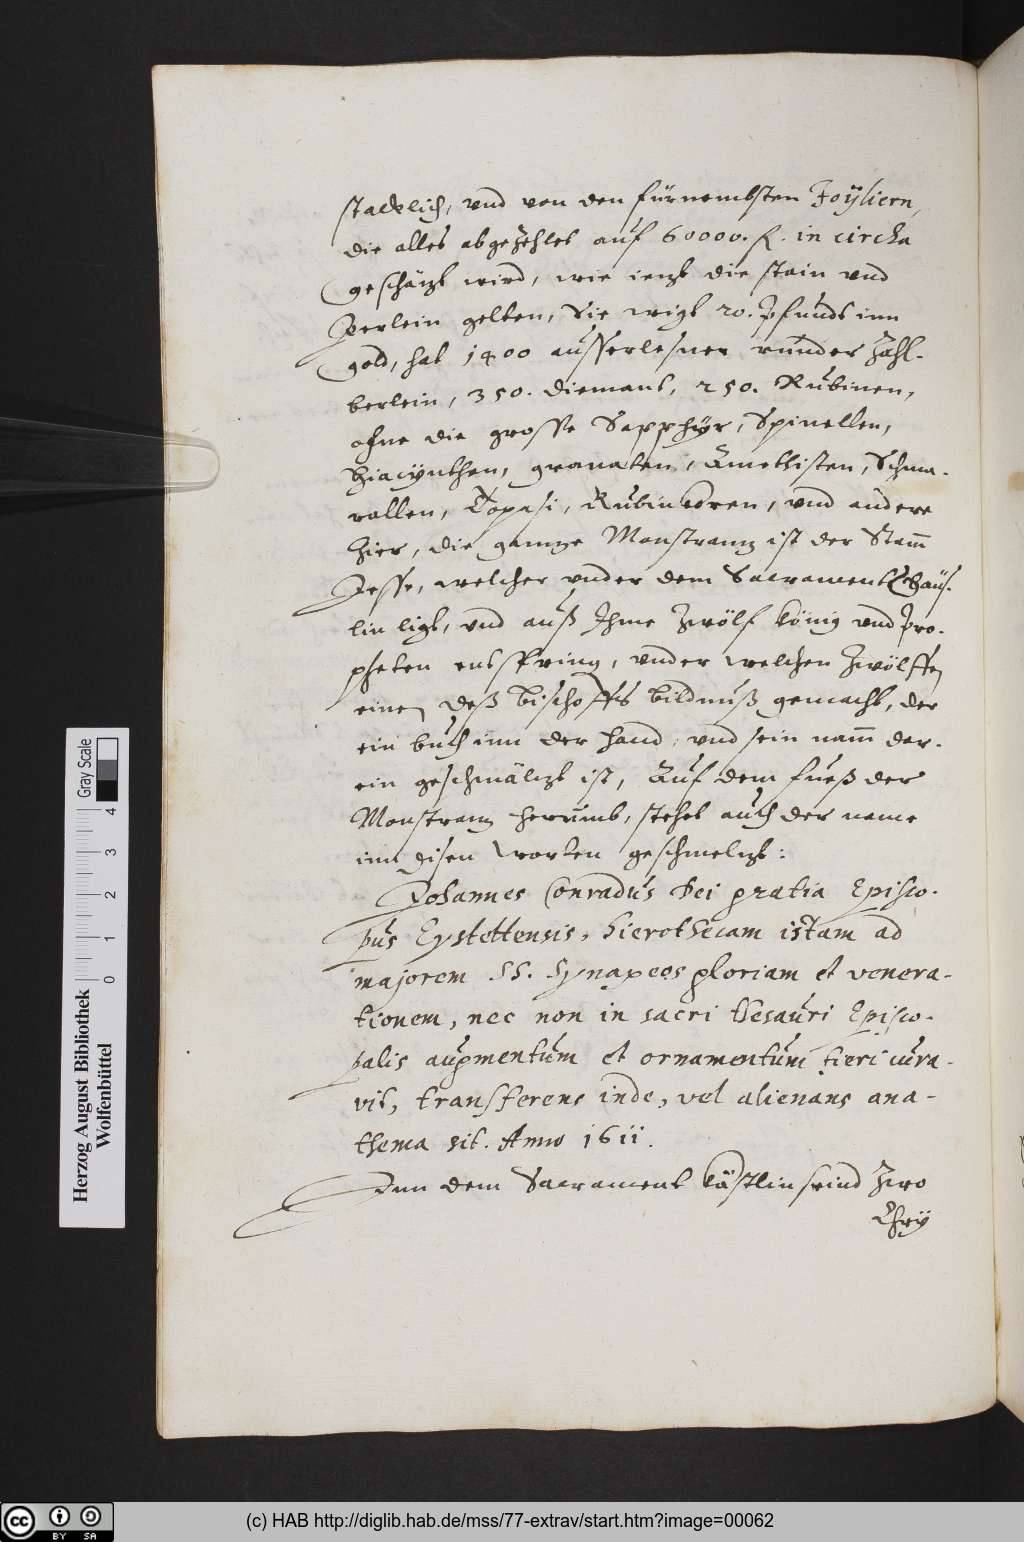 stacklich, vnd von den fürnembsten Joÿliern,
die alles abgezehlet auf 60000. fl. in circka
geschäzt wird, wie iezt die stain vnd
Perlein gelten, Sie wigt 20. Pfundt inn
gold, hat 1400 ausserlesner runder Zahl-
berlein, 350. diemant, 250. Rubinen,
ohne die grosse Sapphÿr, Spinellen,
Hiacÿnthen, granaten, Amethisten, Schma-
rallen, Topasi, Rubin koren, vnd andere
Zier, die gannze Monstranz ist der Stam̃
Jesse, welcher vnder dem Sacrament häus-
lin ligt, vnd auß Jhme Zwölf König vnd Pro-
pheten entspring, vnder welchen Zwölffen
einen deß bischoffs bildnuß gemacht, der
ein buch inn der hand, vnd sein nam̃ dar-
ein geschmälzt ist, Auf dem fueß der
Monstranz herumb, stehet auch der name
inn disen worten geschmelzt:
Johannes Conradus Dei gratia Episco-
pus Eystettensis, hierothecam istam ad
majorem SS. Synaxeos gloriam et venera-
tionem, nec non in sacri thesauri Episco-
palis augmentum et ornamentum fieri cura-
vit, transferens inde, vel alienans ana-
thema sit. Anno 1611.
Inn dem Sacrament kästlin seind Zwo
Chry
Gray Scale
0 1 2 3 4
Herzog August Bibliothek
Wolfenbüttel
cc BY SA
(c) HAB http://diglib.hab.de/mss/77-extrav/start.htm?image=00062